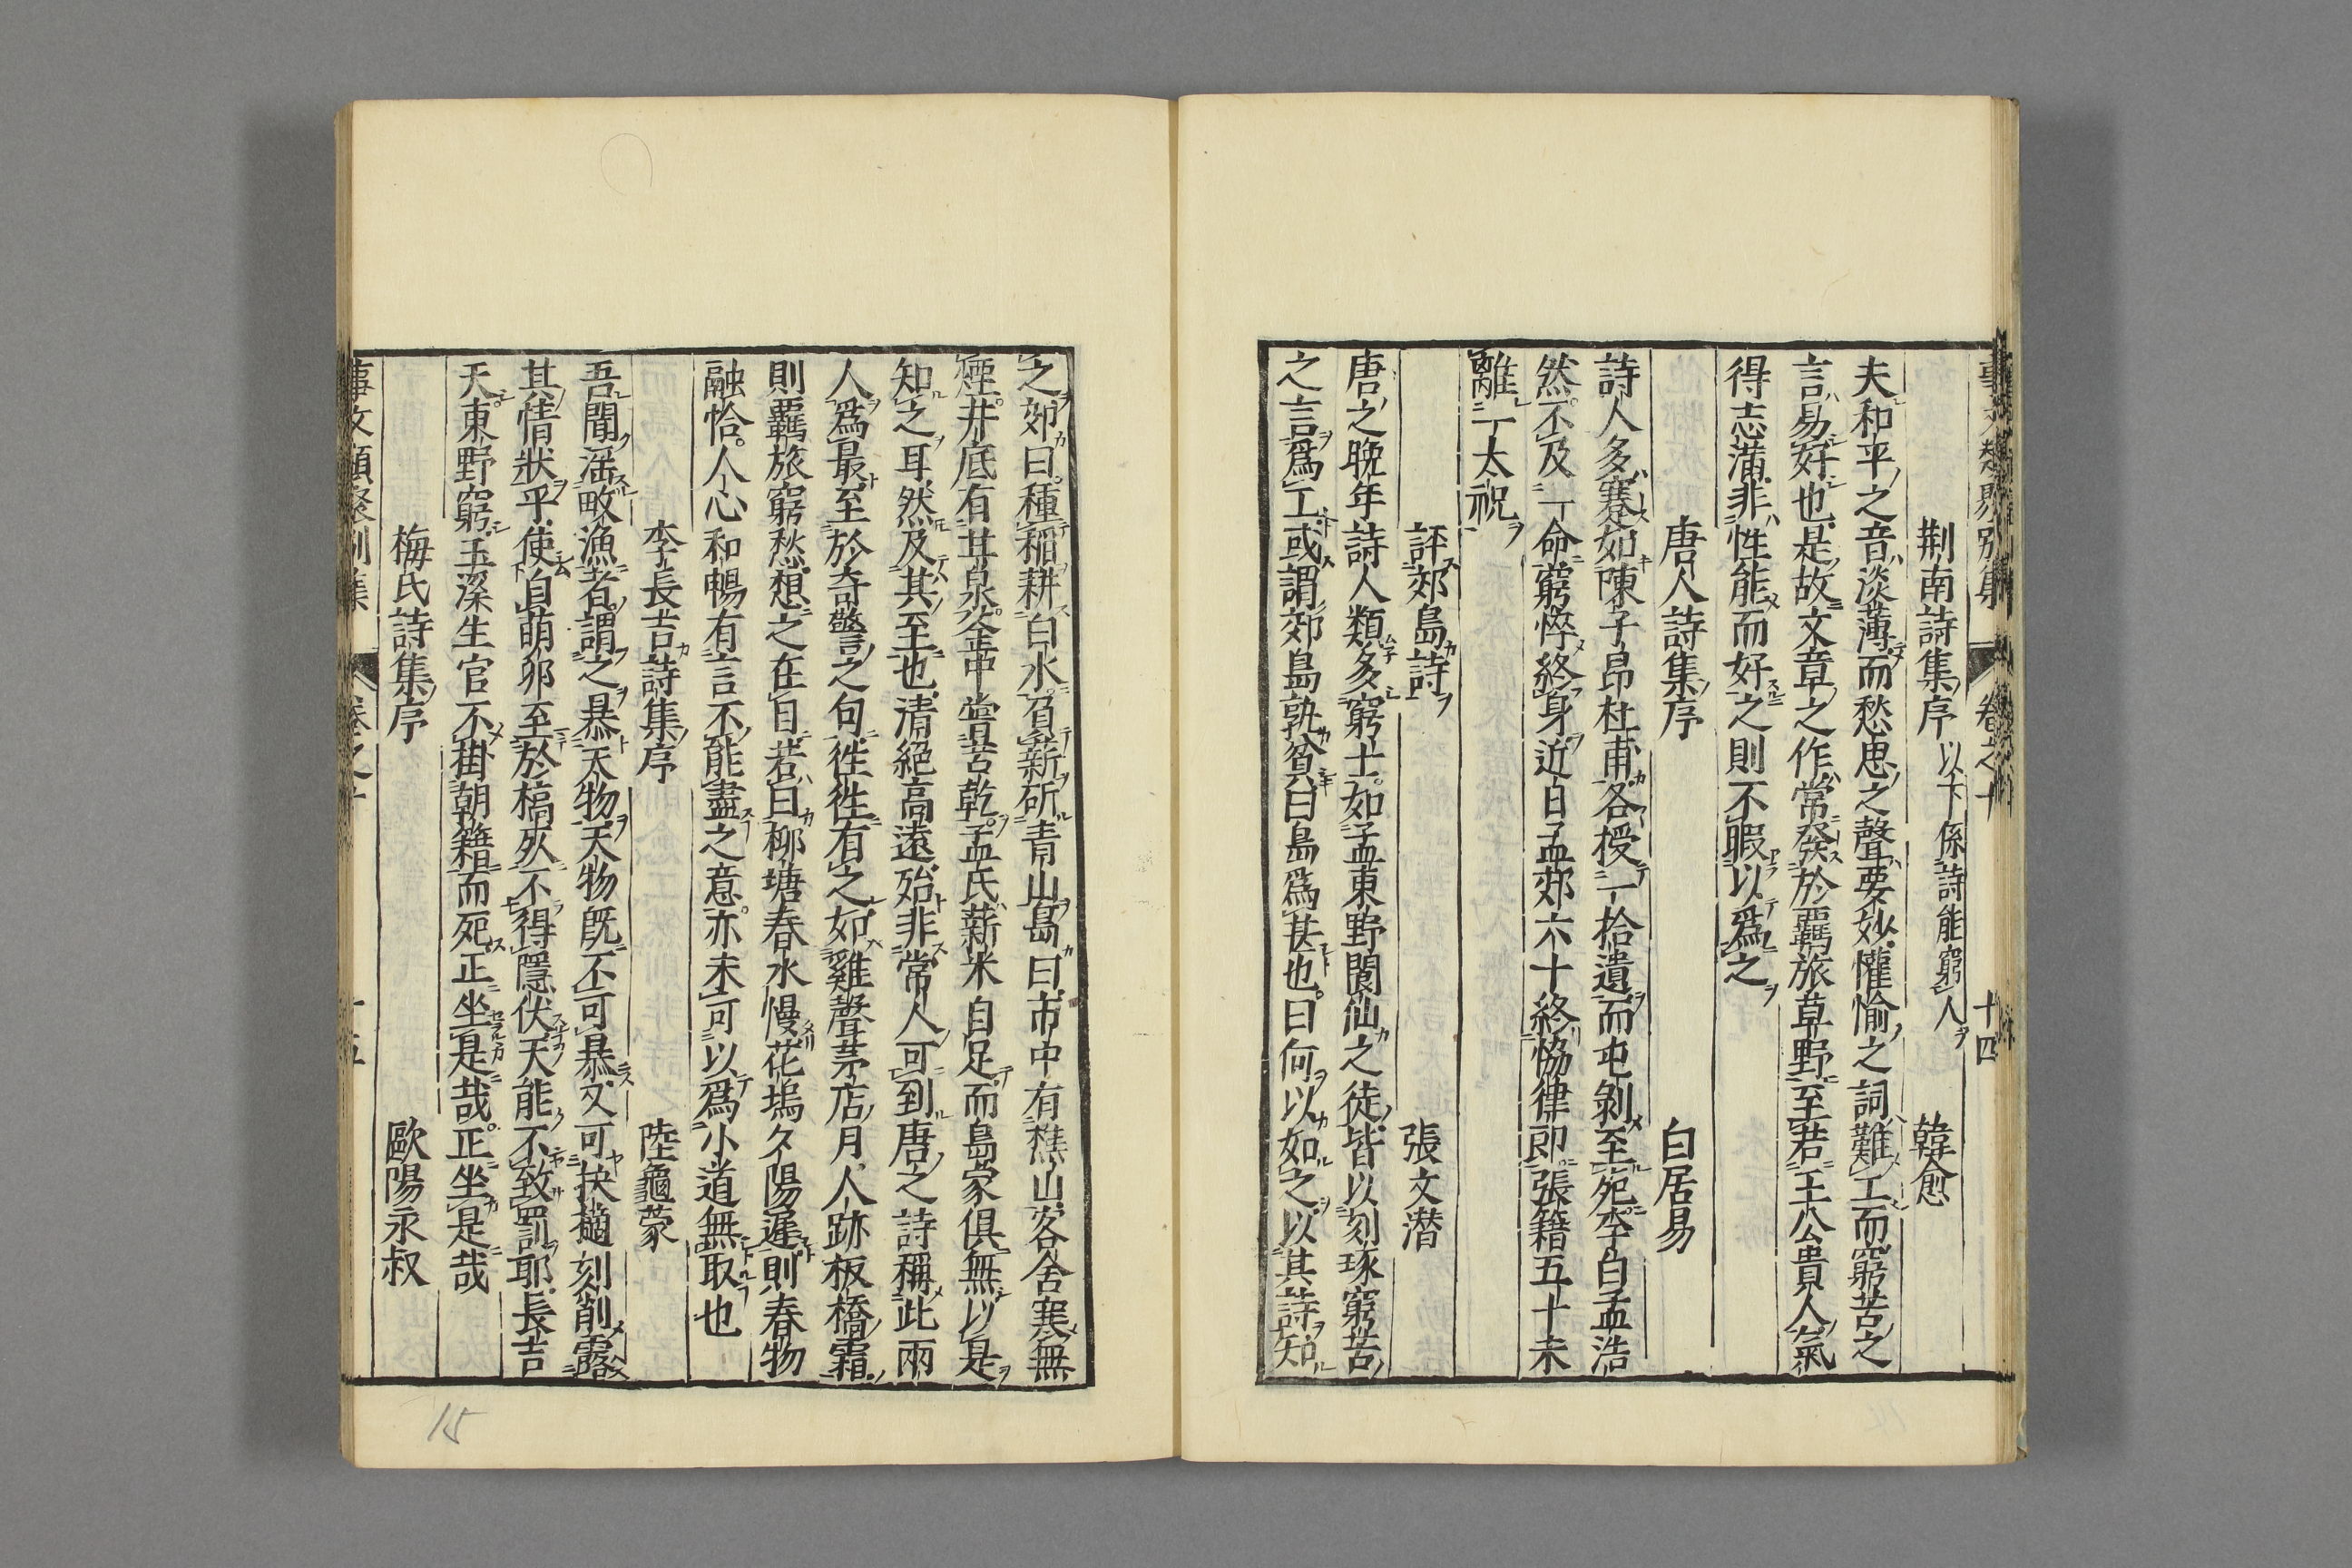 事文類聚別集 卷之十 十四
荆南詩集序 以下係詩能窮人 韓愈
夫和平之音淡薄而愁思之聲要妙懽愉之詞難工而窮苦之
言易好也是故文章之作常發於羈旅草野至若王公貴人氣
得志滿非性能而好之則不暇以爲之
唐人詩集序 白居易
詩人多蹇如陳子昂杜甫各授一拾遺而屯剝至死李白孟浩
然不及一命窮悴終身近日孟郊六十終恊律即張籍五十未
離一太祝
評郊島詩 張文潜
唐之晚年詩人類多窮士如孟東野閬仙之徒皆以刻琢窮苦
之言爲工或謂郊島孰貧曰島爲甚也曰何以如之以其詩知
之郊曰種稻耕白水負薪斫青山島曰市中有樵山客舍寒無
煙井底有甘泉釜中嘗苦乾孟氏薪米自足而島家俱無以是
知之耳然及其至也清絕高遠殆非常人可到唐之詩稱此兩
人爲最至於奇警之句徃徃有之如雞聲茅店月人跡板橋霜
則羈旅窮愁想之在目若曰柳塘春水慢花塢夕陽遲則春物
融恰人心和暢有言不能盡之意亦未可以爲小道無取也
李長吉詩集序 陸龜蒙
吾聞滛畋漁者謂之暴天物天物旣不可暴又可抉擿刻削露
其情狀乎使自萌卵至於槁死不得隱伏天能不致罰耶長吉
天東野窮玉溪生官不掛朝籍而死正坐是哉正坐是哉
梅氏詩集序 歐陽永叔
事文類聚別集 卷之十 十五
15